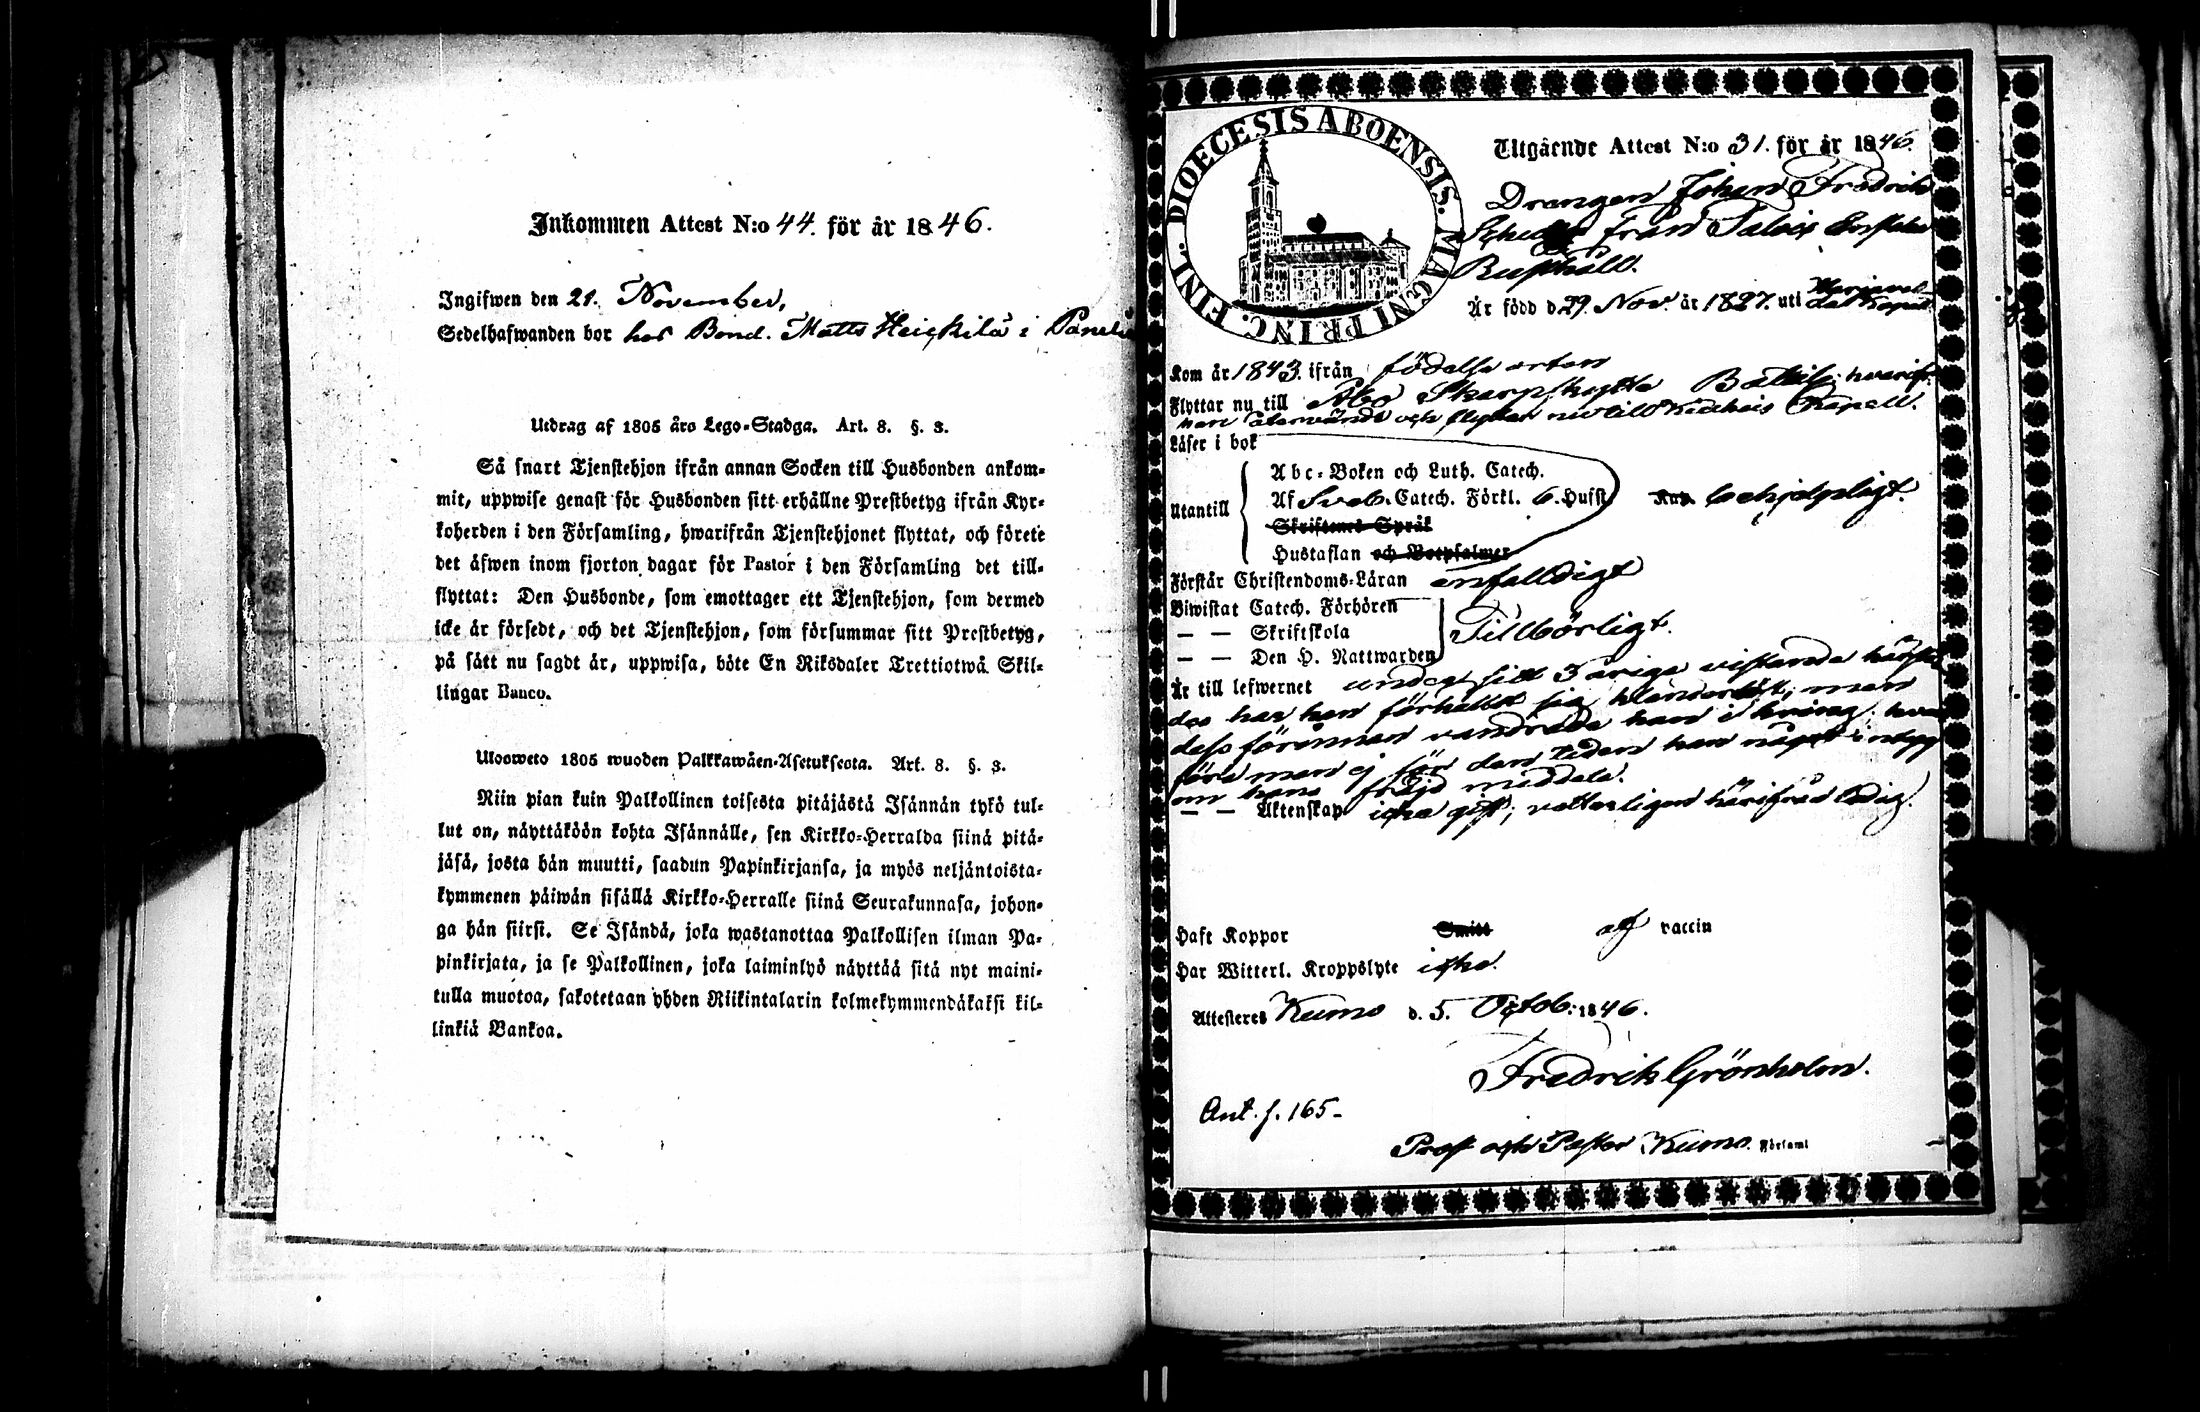 Inkommen Attest N:o 44. för år 1846.
Ingifwen den 21. November,
Sedelhafwanden bor hos Bond. Matts Heickilä i Panelia
Utdrag af 1805 års Lego-Stadga. Art. 8. §. 3.
Så snart Tjenstehjon ifrån annan Socken till Husbonden ankom-
mit, uppwise genast för Husbonden sitt erhållne Prestbetyg ifrån Kyr-
koherden i den Församling, hwarifrån Tjenstehjonet flyttat, och förete
det äfwen inom fjorton dagar för Pastor i den Församling det till-
flyttat: Den Husbonde, som emottager ett Tjenstehjon, som dermed
icke är försedt, och det Tjenstehjon, som försummar sitt Prestbetyg,
på sätt nu sagdt är, uppwisa, böte En Riksdaler Trettiotwå Skil-
lingar Banco.
Ulosweto 1805 wuoden Palkkawäen-Asetuksesta. Art. 8. §. 3.
Niin pian kuin Palkollinen toisesta pitäjästä Isännän tykö tul-
lut on, näyttäköön kohta Isännälle, sen Kirkko-Herralda siinä pitä-
jäsä, josta hän muutti, saadun Papinkirjansa, ja myös neljäntoista-
kymmenen päiwän sisällä Kirkko-Herralle siinä Seurakunnasa, johon-
ga hän siirsi. Se Isändä, joka wastanottaa Palkollisen ilman Pa-
pinkirjata, ja se Palkollinen, joka laiminlyö näyttää sitä nyt maini-
tulla muotoa, sakotetaan yhden Riikintalarin kolmekymmendäkaksi kil-
linkiä Bankoa.
DIOECESIS ABOENSIS. MAGNI PRINC. FINL.
Utgående Attest N:o 31. för år 1846.
Drengen Johan Fredrik
från
Rusthåll.
Är född d. 29. Nov. år 1827. uti
Kom år 1843. ifrån födelse orten
Flyttar nu till Åbo Skarpskytte Bataill: hvarifr.
han återvändt och flyttar nu till Kiukais Kapell.
Läser i bok
Utantill
Abc-Boken och Luth. Catech.
Af Sveb. Catech. Förkl. 6. Hufst behjelpligt.
Skriftenes Språk
Hustaflan och Botpsalmer
Förstår Christendoms-Läran enfalldigt
Biwistat Catech. Förhören
— — Skriftskola Tillbörligt.
— — Den H. Nattwarden
Är till lefwernet under sitt 3 åriga vistande härstä
des har han förhållit sig oklanderligt; men
dess förinnan vandrade han i kring; hvar
före man ej för den tiden kan något intyg
om hans frejd meddela.
— — Äktenskap icke gift; vetterligen härifrån ledig.
Haft Koppor Smitt af vaccin
Har Witterl. Kroppslyte icke.
Attesteres Kumo d. 5. Octob: 1846.
Fredrik Grönholm.
Ant. s. 165-
Prost och Pastor i Kumo. Församl